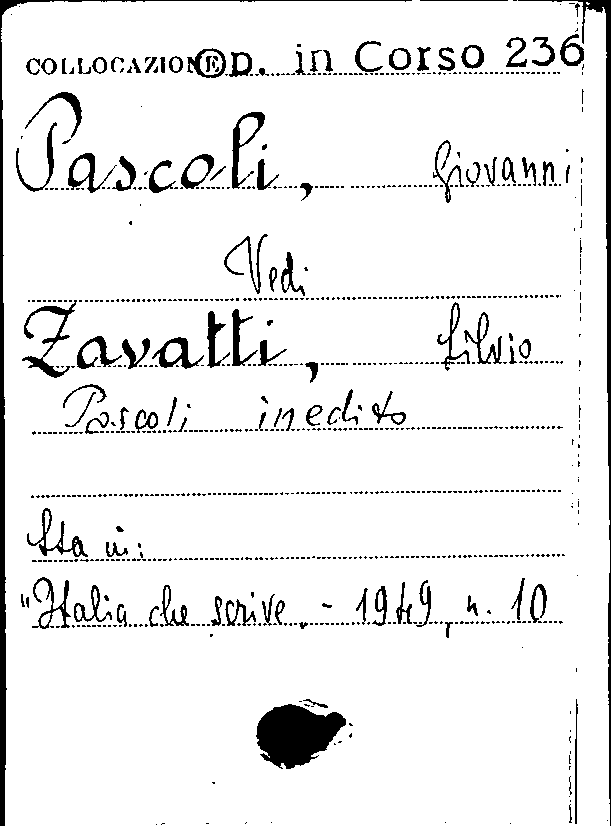 COLLOCAZIONE Op. in Corso 236
Pascoli, Giovanni
Vedi
Zavatti, Silvio
Pascoli inedito
Sta in:
"Italia che scrive. - 1949, n. 10